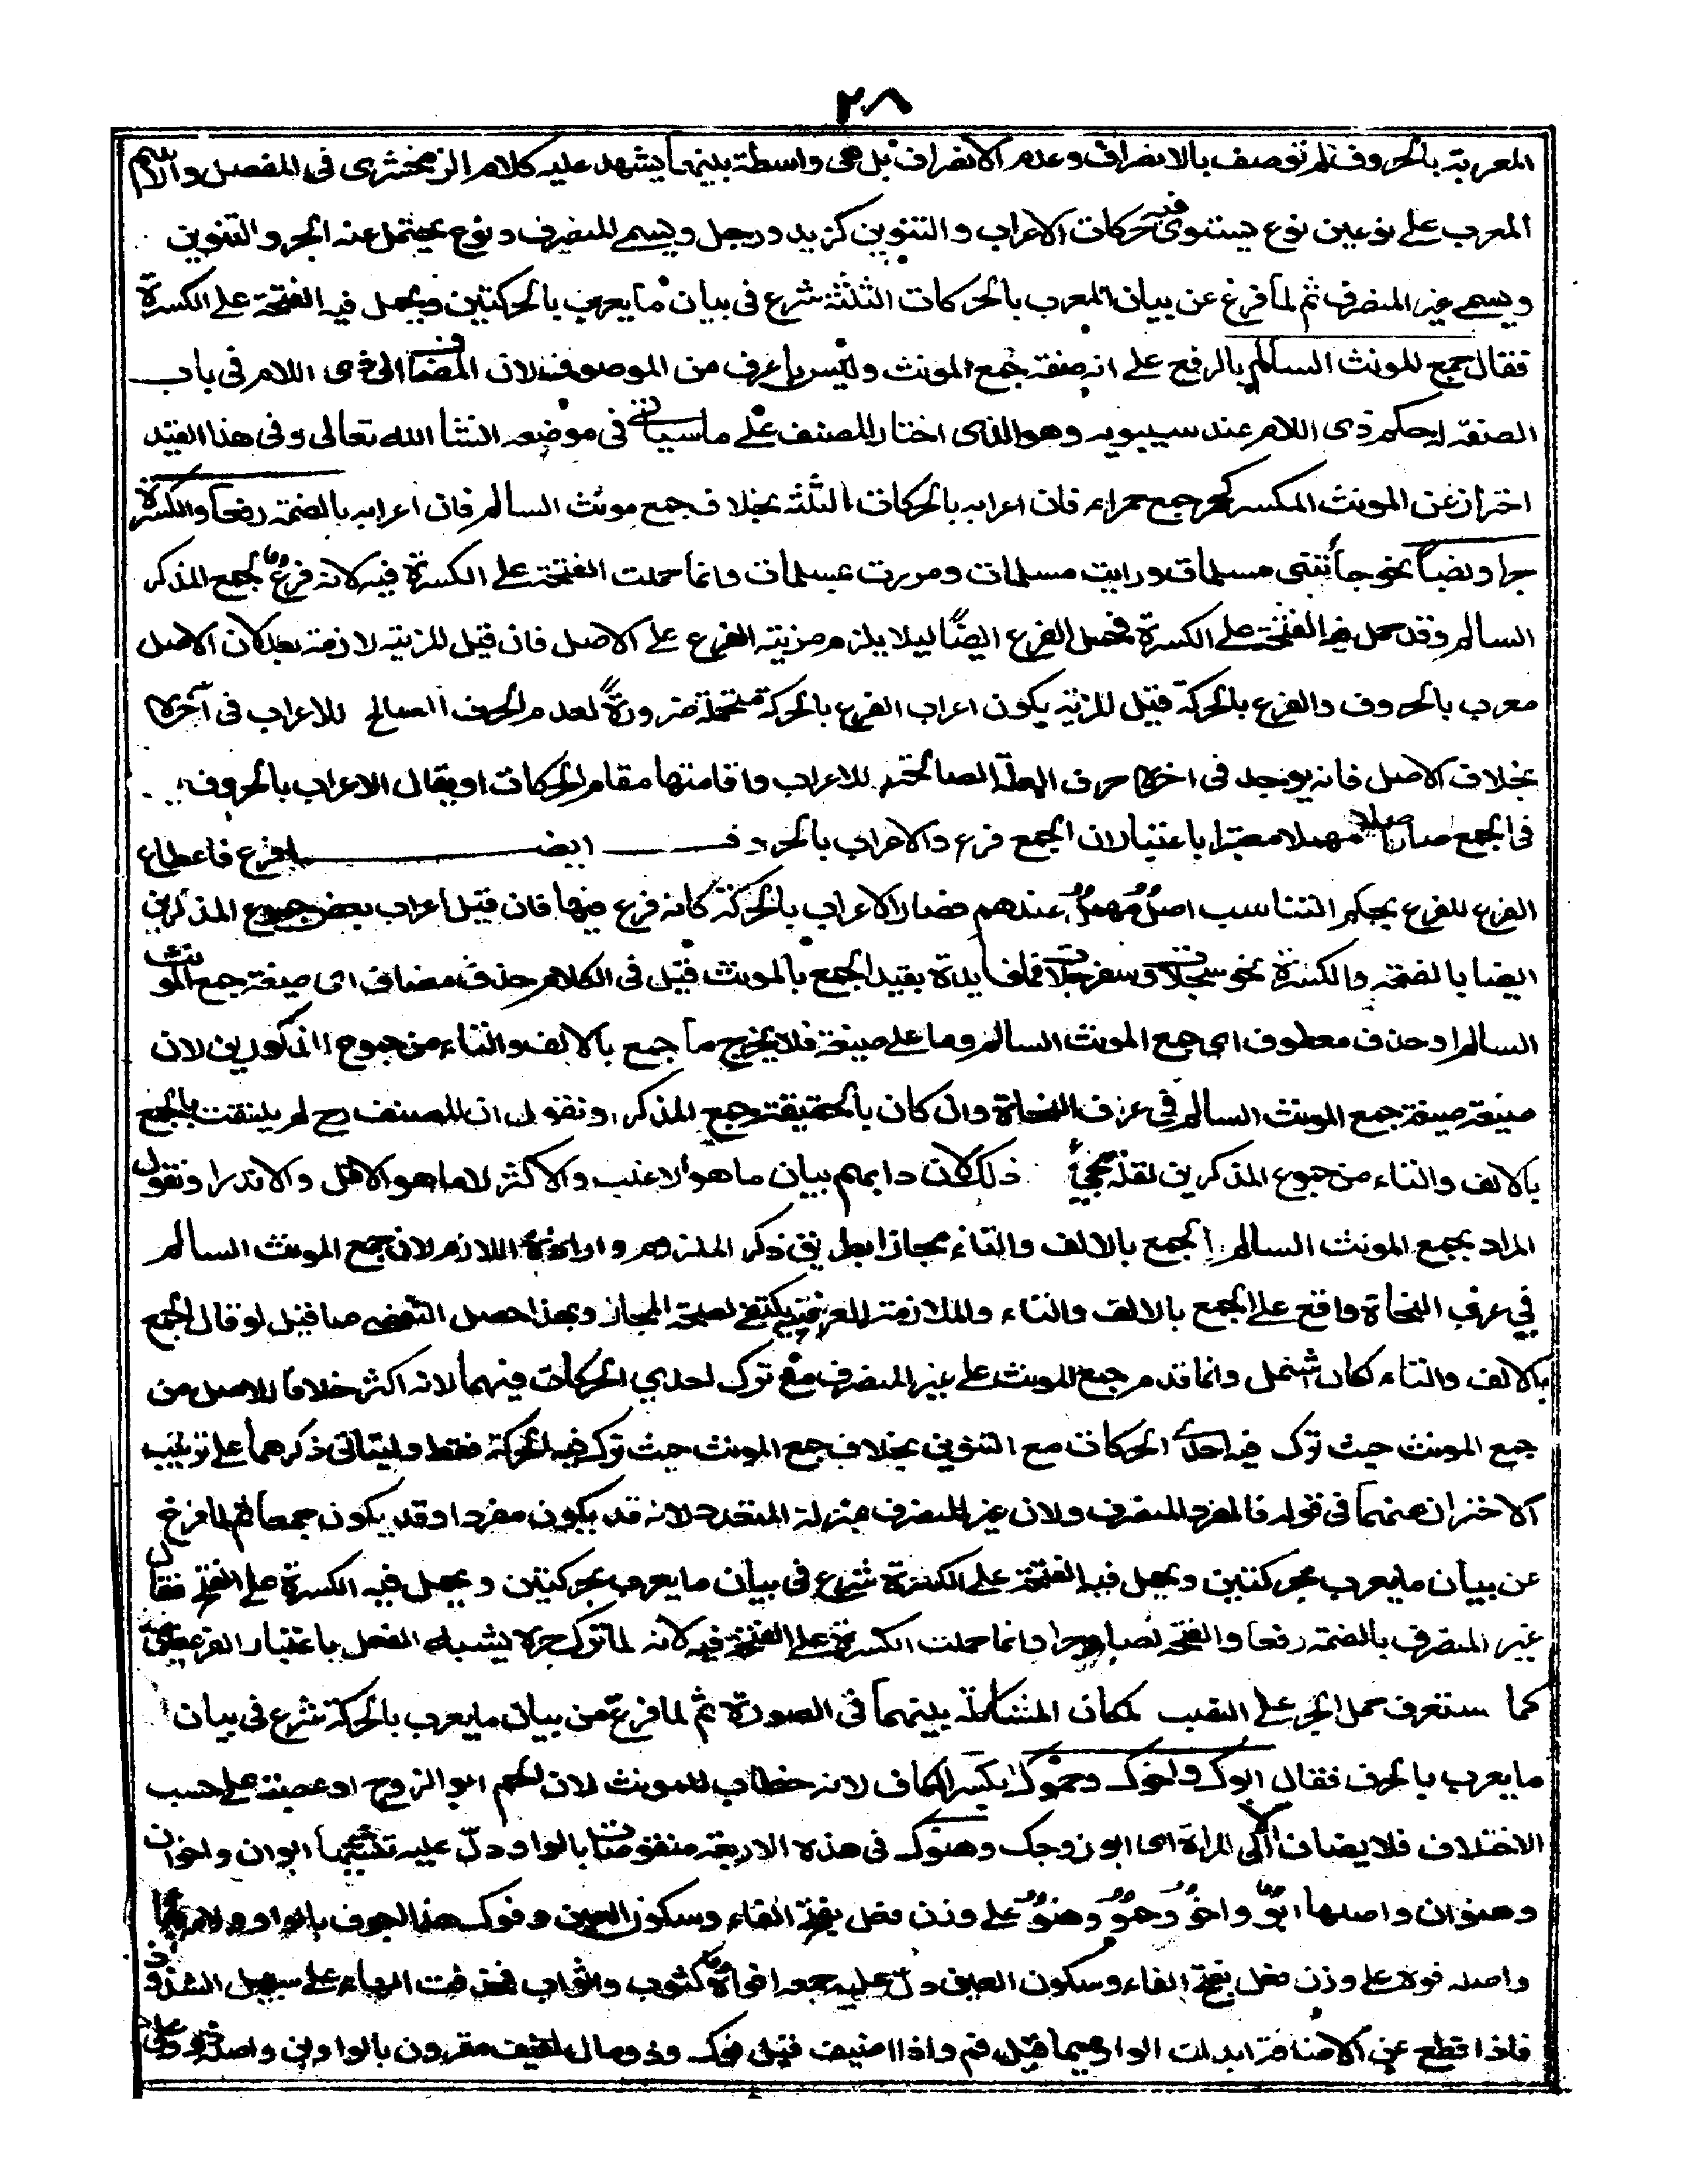 ٢٨
المعربة بالحروف لم توصف بالانصراف وعدم الانصراف بل هى واسطة بينهما يشهد عليه كلام الزمخشرى فى المفصل والاسم
المعرب على نوعين نوع يستوفى فيه حركات الاعراب والتنوين كزيد ورجل ويسمى المنصرف ونوع يختزل عنه الجر والتنوين
ويسمى غير المنصرف ثم لما فرغ عن بيان المعرب بالحركات الثلثة شرع فى بيان ما يعرب بالحركتين ويحمل فيه الفتحة على الكسرة
فقال جمع المونث السالم بالرفع على انه صفة جمع المونث وليس باعرف من الموصوف لان المضاف الى ذى اللام فى باب
الصفة له حكم ذى اللام عند سيبويه وهو الذى اختار المصنف على ما سياتى فى موضعه انشا الله تعالى وفى هذا القيد
احتراز عن المونث المكسر كحمر جمع حمراء فان اعرابه بالحركات الثلثة بخلاف جمع مونث السالم فان اعرابه بالضمة رفعا والكسرة
جرا ونصبا نحو جائتنى مسلمات ورايت مسلمات ومررت بمسلمات وانما حملت الفتحة على الكسرة فيه لانه فرع لجمع المذكر
السالم وقد حمل فيه الفتحة على الكسرة فحمل الفرع ايضًا ليلا يلزم مزية الفرع على الاصل فان قيل المزية لازمة بعد لان الاصل
معرب بالحروف والفرع بالحركة قيل المزية يكون اعراب الفرع بالحركة متحملة ضرورةً لعدم الحرف الصالح للاعراب فى آخره
بخلاف الاصل فانه يوجد فى اخره حرف العلة الصالحة للاعراب واقامتها مقام الحركات او يقال الاعراب بالحروف
فى الجمع صار اصلا مهملا معتبرا باعتبار ان الجمع فرع والاعراب بالحروف ايضا فرع فاعطاء
الفرع للفرع بحكم التناسب اصلٌ مهملٌ عندهم فصار الاعراب بالحركة كانه فرع فيها فان قيل اعراب بعض جموع المذكرين
ايضا بالضمة والكسرة نحو سجلات وسفرجلات فما فايدة بقيد الجمع بالمونث قيل فى الكلام حذف مضاف اى صيغة جمع المونث
السالم او حذف معطوف اى جمع المونث السالم وما على صيغة فلا يخرج ما جمع بالالف والتاء من جموع المذكورين لان
صيغة صيغة جمع المونث السالم فى عرف النحاة وان كان بالحقيقة جمع المذكر او نقول ان المصنف رح لم يلتفت بالجمع
بالالف والتاء من جموع المذكرين لقلة مجئ ذلك لان دابهم بيان ما هو الاغلب والاكثر لا ما هو الاقل والاندر او نقول
المراد بجمع المونث السالم الجمع بالالف والتاء مجازا بطريق ذكر الملزوم وارادة اللازم لان جمع المونث السالم
فى عرف النحاة واقع على الجمع بالالف والتاء والملازمة العرفية يكتفى لصحة المجاز وبهذا حصل التفصى عما قيل لو قال الجمع
بالالف والتاء لكان اشمل وانما قدم جمع المونث على غير المنصرف مع ترك احدى الحركات فيهما لانه اكثر خلافا للاصل من
جمع المونث حيث ترك فيه احدى الحركات مع التنوين بخلاف جمع المونث حيث ترك فيه الحركة فقط وليتاتى ذكرهما على ترتيب
الاحتراز عنهما فى قوله فالمفرد المنصرف ولان غير المنصرف بمنزلة المتعدد لانه قد يكون مفردا وقد يكون جمعا ثم لما فرغ
عن بيان ما يعرب بحركتين ويحمل فيه الفتحة على الكسرة شرع فى بيان ما يعرب بحركتين ويحمل فيه الكسرة على الفتح فقال
غير المنصرف بالضمة رفعا والفتحة نصبا وجرا وانما حملت الكسرة على الفتحة فيه لانه لما ترك جره لشبه الفعل باعتبار الفرعيتين
كما ستعرف حمل الجر على النصب لمكان المشاكلة بينهما فى الصورة ثم لما فرغ من بيان ما يعرب بالحركة شرع فى بيان
ما يعرب بالحرف فقال ابوك واخوك وحموك بكسر الكاف لانه خطاب للمونث لان الحم ابو الزوج او عصبته على حسب
الاختلاف فلا يضاف الا الى المراة اى ابو زوجك وهنوك فى هذه الاربعة منقوصات بالواو ودلّ عليه تثنيتها ابوان واخوان
وهنوان واصلها ابوٌ واخوٌ وحموٌ وهنوٌ على وزن فعل بفتح الفاء وسكون العين وفوك هذا اجوف بالواو ولامه هاء
واصله فوه على وزن فعل بفتح الفاء وسكون العين دلّ عليه جمعه افواه كثوب واثواب فحذفت الهاء على سبيل الشذوذ
فاذا قطع عن الاضافة ابدلت الواو ميما قيل فم واذا اضيف قيل فوك وذو مال لفيف مقرون بالواوين واصله